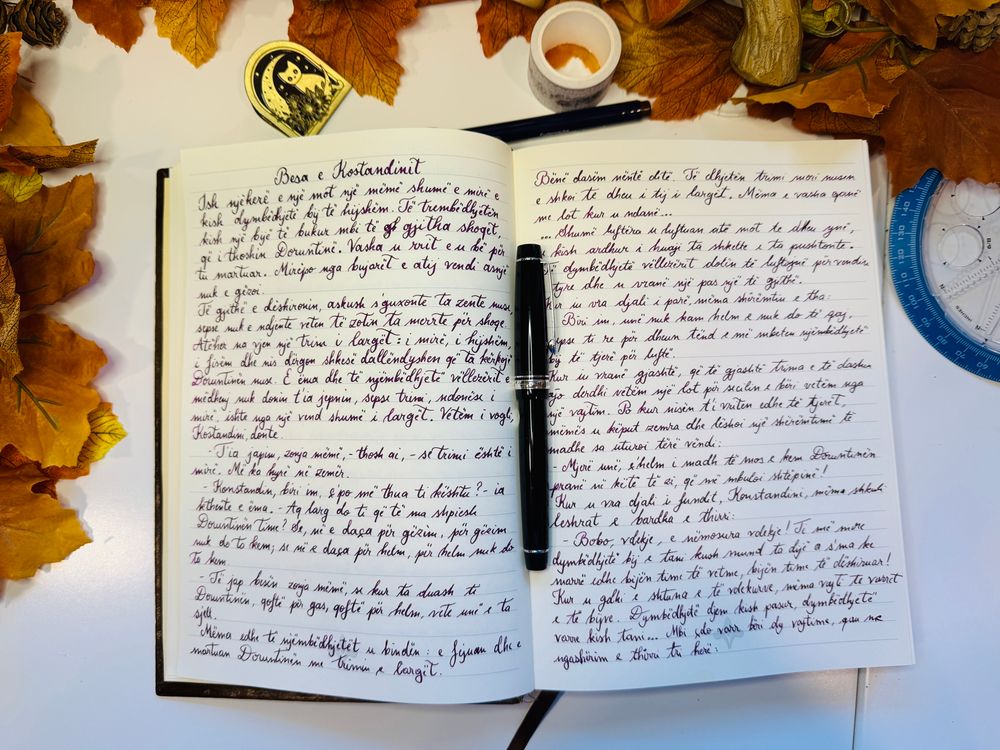 Besa e Kostandinit
Ish njëherë e një mot një mëmë shumë e mirë e
kish dymbëdhjetë bij të hijshëm. Të trembëdhjetën
kish një bijë të bukur mbi të gjitha shoqet,
që i thoshin Doruntinë. Vasha u rrit e u bë për
tu martuar. Mirëpo nga bujarët e atij vendi asnjë
nuk e gëzoi.
Të gjithë e dëshironin, askush s'guxonte ta zente nuse,
sepse nuk e ndjente veten të zotin ta merrte për shoqe.
Atëher na vjen një trim i largët: i mirë, i hijshëm,
i fisëm dhe nis dërgon shkesë dallëndyshen që ta kërkojë
Doruntinën nuse. E ëma dhe të njëmbëdhjetë vëllezërit e
mëdhenj nuk donin t'ia jepnin, sepse trimi, ndonëse i
mirë, ishte nga një vend shumë i largët. Vetëm i vogli,
Kostandini, donte.
- T'ia japim, zonja mëmë, - thosh ai, - se trimi është i
mirë. Më ka hyrë në zemër.
- Konstandin, biri im, ç'po më thua ti kështu? - ia
kthente e ëma. - Aq larg do ti që të ma shpiesh
Doruntinën time? Se, në e daça për gëzim, për gëzim
nuk do ta kem; se në e daça për helm, për helm nuk do
ta kem.
- Të jap besën zonja mëmë, se kur ta duash ti
Doruntinën, qoftë për gas, qoftë për helm, vete unë e ta
sjell.
Mëma edhe të njëmbëdhjetët u bindën: e fejuan dhe e
martuan Doruntinën me trimin e largët.
Bënë dasëm nëntë ditë. Të dhjetën trimi mori nusen
e shkoi te dheu i tij i largët. Mëma e vasha qanë
me lot kur u ndanë...
... Shumë luftëra u luftuan atë mot te dheu ynë,
kish ardhur i huaji ta shkelte e ta pushtonte.
Të dymbëdhjetë vëllezërit dolën të luftojnë për vendin
e tyre dhe u vranë një pas një të gjithë.
Kur u vra djali i parë, mëma shërëmtiu e tha:
Biri im, unë nuk kam helm e nuk do të qaj,
sepse ti re për dheun tënd e më mbeten njëmbëdhjetë
bij të tjerë për luftë.
Kur u vranë gjashtë, që të gjashtë trima e të dashur
ajo derdhi vetëm një lot për secilin e bëri vetëm nga
një vajtim. Po kur nisën t'i vriten edhe të tjerët,
mëmës u këput zemra dhe lëshoi një shërëntimë të
madhe sa utëroi tërë vendi:
- Mjerë unë, ç'helm i madh të mos e kem Doruntinën
pranë në këtë të zi, që më mbuloi shtëpinë!
Kur u vra djali i fundit, Konstandini, mëma shkuli
leshrat e bardha e thirri:
- Bobo, vdekje, e nëmosura vdekje! Ti më more
dymbëdhjetë bij e tani kush mund ta dijë a s'ma ke
marrë edhe bijën time të vetme, bijën time të dëshiruar!
Kur u gdhi e shtuna e të vdekurve, mëma vajti te varret
e të bijve. Dymbëdhjetë djem kish pasur, dymbëdhjetë
varre kish tani... Mbi çdo varr bëri dy vajtime, qau me
ngashërim e thirri tri herë: